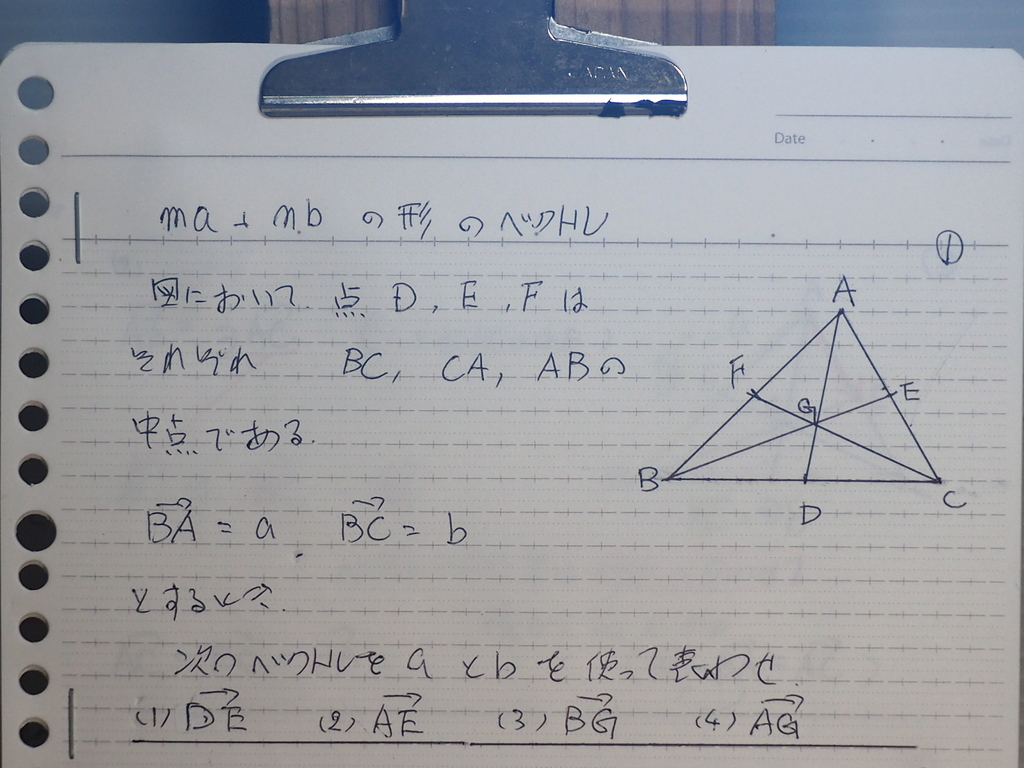 JAPAN
Date
ma + nb の形のベクトル
①
図において、点 D, E, F は
それぞれ BC, CA, ABの
中点である.
BA→ = a BC→ = b
とするとき.
次のベクトルを a と b を使って表わせ.
(1) DE→ (2) AE→ (3) BG→ (4) AG→
A
F
E
G
B
D
C